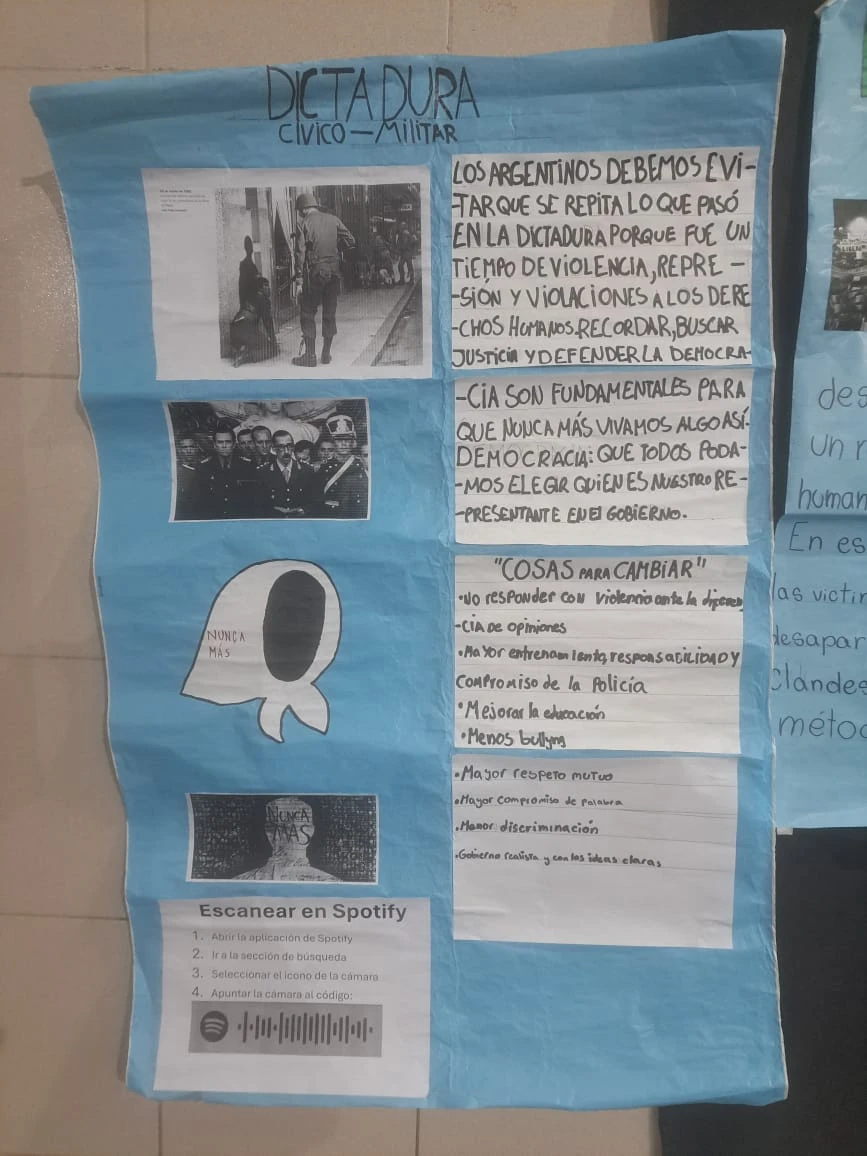 DICTADURA
CÍVICO-MILITAR
LOS ARGENTINOS DEBEMOS EVI-
-TAR QUE SE REPITA LO QUE PASÓ
EN LA DICTADURA PORQUE FUE UN
TIEMPO DE VIOLENCIA, REPRE-
-SIÓN Y VIOLACIONES A LOS DERE
-CHOS HUMANOS. RECORDAR, BUSCAR
JUSTICIA Y DEFENDER LA DEMOCRA-
-CIA SON FUNDAMENTALES PARA
QUE NUNCA MÁS VIVAMOS ALGO ASÍ.
DEMOCRACIA: QUE TODOS PODA-
-MOS ELEGIR QUIEN ES NUESTRO RE-
-PRESENTANTE EN El GOBIERNO.
"COSAS PARA CAMBIAR"
•NO responder con violencia ante la diferen
-CIA De opiniones
•Mayor entrenamiento, responsabilidad y
compromiso de la Policía
•Mejorar la educación
•Menos bullyng
•Mayor respeto mutuo
•Mayor compromiso de palabra
•Menor discriminación
•Gobierno realista y con las ideas claras
NUNCA
MÁS
NUNCA
MÁS
Escanear en Spotify
1. Abrir la aplicación de Spotify
2. Ir a la sección de búsqueda
3. Seleccionar el icono de la cámara
4. Apuntar la cámara al código:
des
un
human
En es
las victi
desapar
Clandes
métod